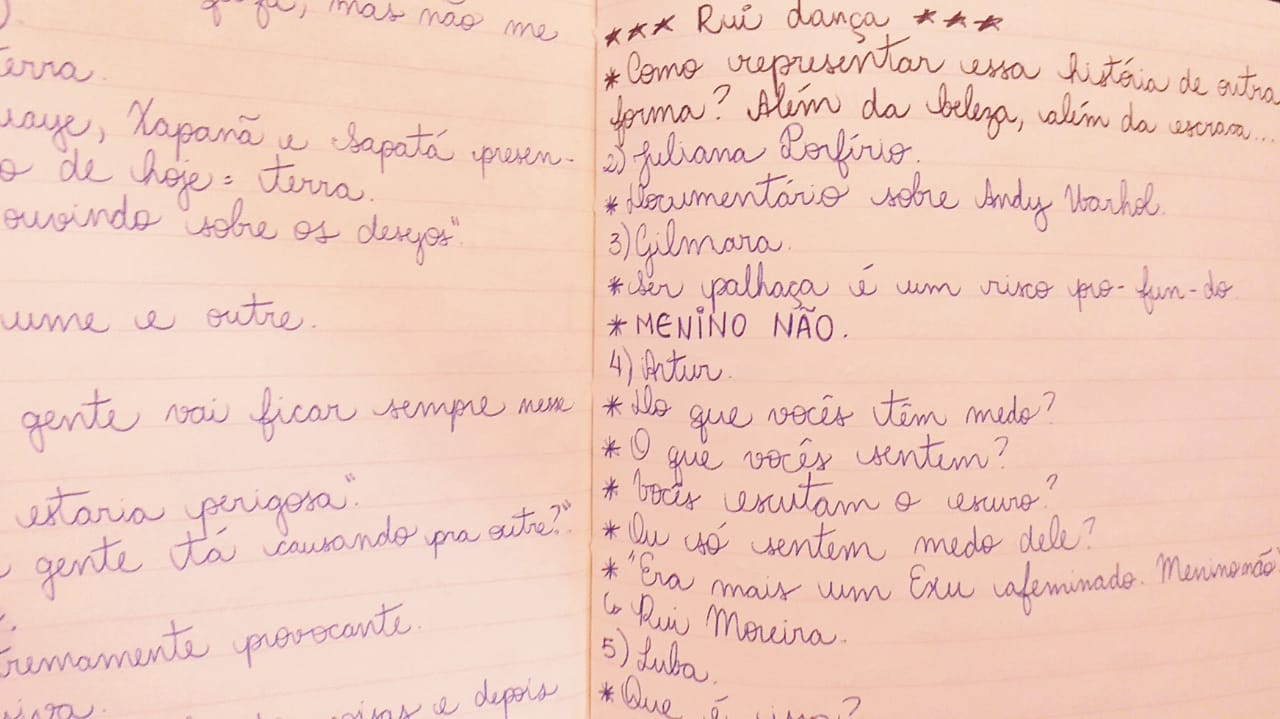 mas não me
terra.
Xapanã e Sapatá presen-
o de hoje = terra.
ouvindo sobre os desejos"
ume e outre.
gente vai ficar sempre nesse
estaria perigosa".
gente tá causando pra outre?"
tremamente provocante.
e depois
*** Rui dança ***
* Como representar essa história de outra
forma? Além da beleza, além da escrava...
2) Juliana Porfírio.
* Documentário sobre Andy Warhol.
3) Gilmara.
* Ser palhaça é um risco pro-fun-do
* MENINO NÃO.
4) Artur.
* Do que vocês têm medo?
* O que vocês sentem?
* Vocês escutam o escuro?
* Ou só sentem medo dele?
* "Era mais um Exu afeminado. Menino não"
↳ Rui Moreira.
5) Luba.
* Que é isso?